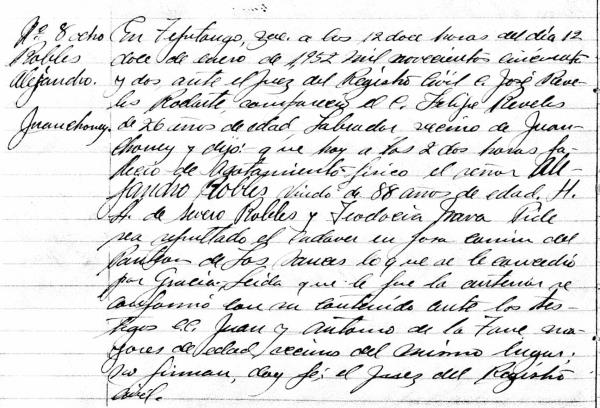 No. 8 ocho
Robles
Alejandro.
Juanchorrey.
En Tepetongo, Zac. a las 12 doce horas del día 12
doce de enero de 1952 mil novecientos cincuenta
y dos ante el Juez del Registro Civil C. José Reve-
les Rodarte, compareció el C. Felipe Reveles
de 26 años de edad, labrador vecino de Juan-
chorrey y dijo: que hoy a las 2 dos horas fa-
lleció de Agotamiento físico el señor Ale-
jandro Robles viudo de 88 años de edad, H.
L. de Robles y Teodocia Nava Pide
sea sepultado el cadaver en fosa comun del
Panteon de Los lo que se le concedio
por Gracia. Leida que le fue la anterior se
conformó con su contenido ante los tes-
tigos CC. Juan y Antonio de la Torre ma-
yores de edad, vecinos del mismo lugar;
no firman, doy fé; el Juez del Registro
Civil.